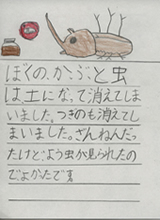 ぼくの、かぶと虫
は、土になって消えてしま
いました。つぎのも消えてし
まいました。ざんねんだっ
たけど、よう虫が見られたの
でよかたで